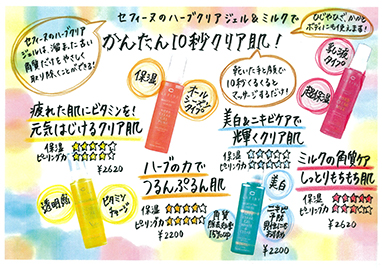 セフィーヌのハーブクリアジェル&ミルクで
かんたん10秒クリア肌!
セフィーヌのハーブクリア
ジェルは、溜まった古い
角質だけをやさしく
取り除くことができる!
ひじやひざ、かかと
ボディにも使えます!
乾いた手と顔で
10秒くるくると
マッサージするだけ!
保湿
オール
シーズン
タイプ
乳液
タイプ
超保湿
疲れた肌にビタミンを!
元気はじけるクリア肌
保湿
ピーリング力
¥2620
美白&ニキビケアで
輝くクリア肌
保湿
ピーリング力
ハーブの力で
つるんぷるん肌
保湿
ピーリング力
¥2200
ミルクの角質ケア
しっとりもちもち肌
保湿
ピーリング力
¥2620
透明感
ビタミン
チャージ
美白
角質
除去効果
15%UP
ニキビ
予防
男性にも
おすすめ
¥2200